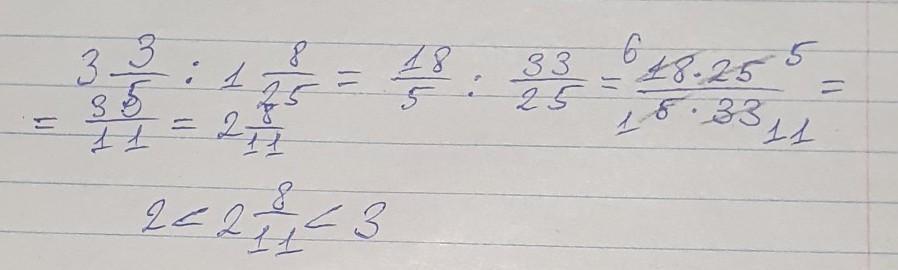 3 3/5 : 1 8/25 = 18/5 : 33/25 = 6 18·25 5 / 1 5·33 11 =
= 30/11 = 2 8/11
2 < 2 8/11 < 3